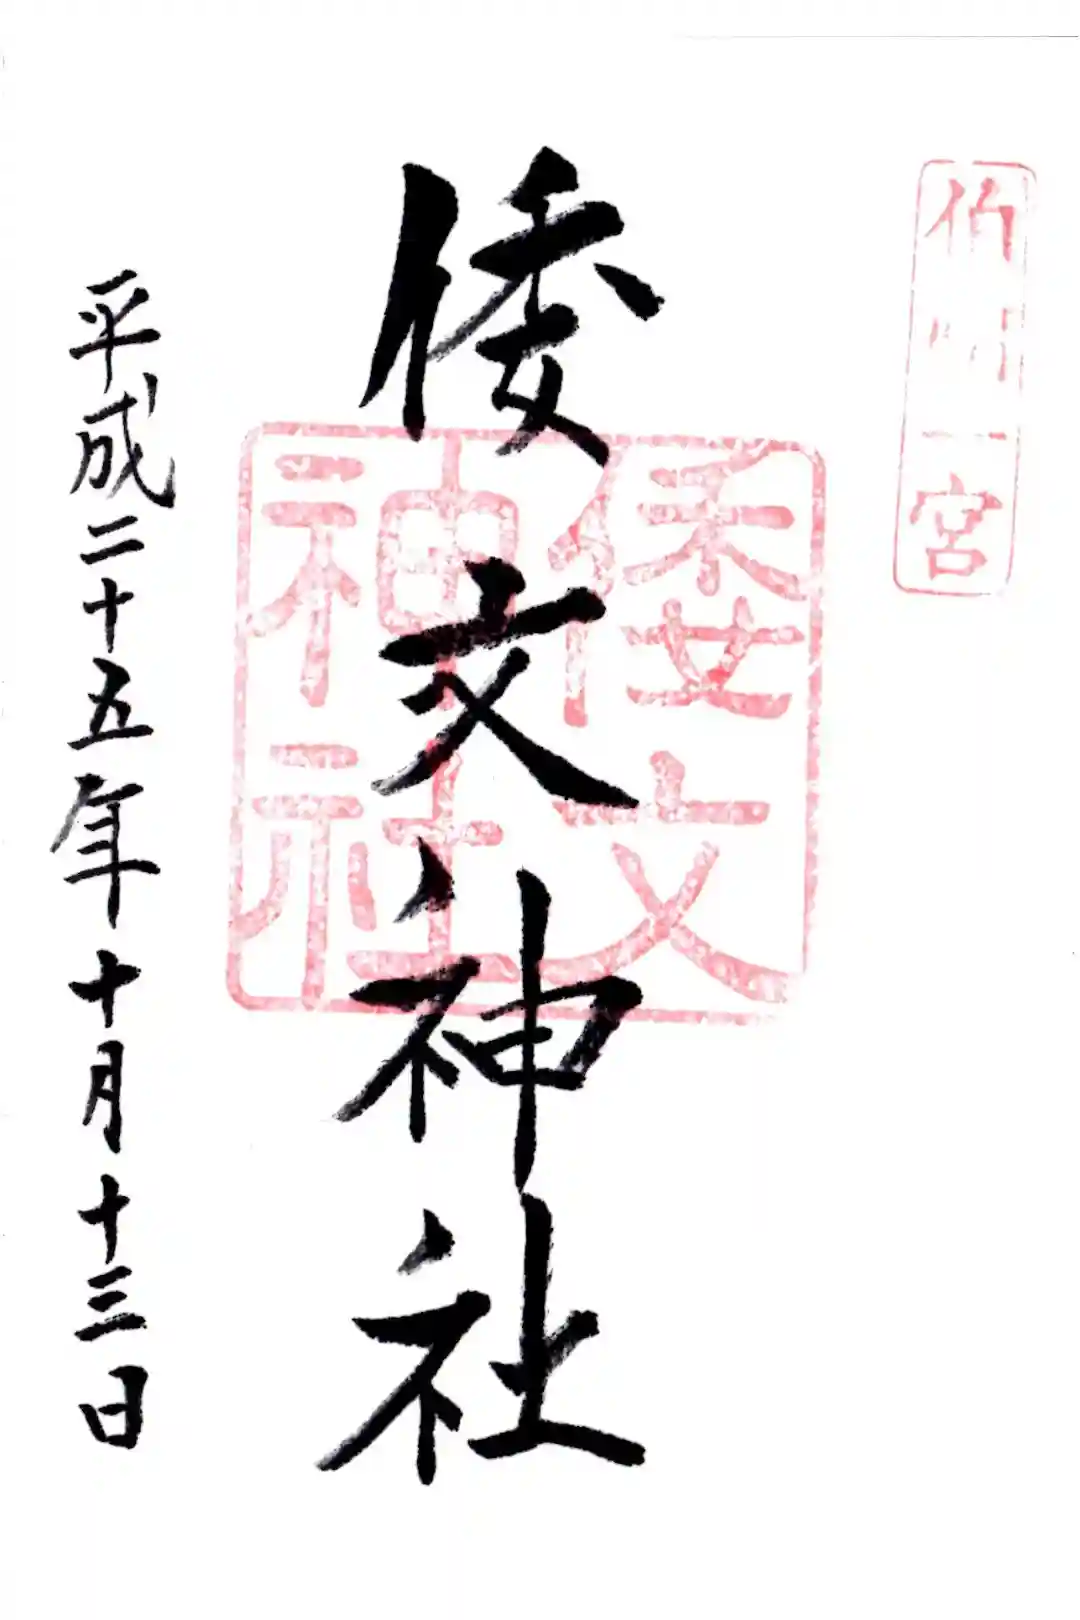 伯耆一宮
倭文神社
倭文
神社
平成二十五年十月十三日